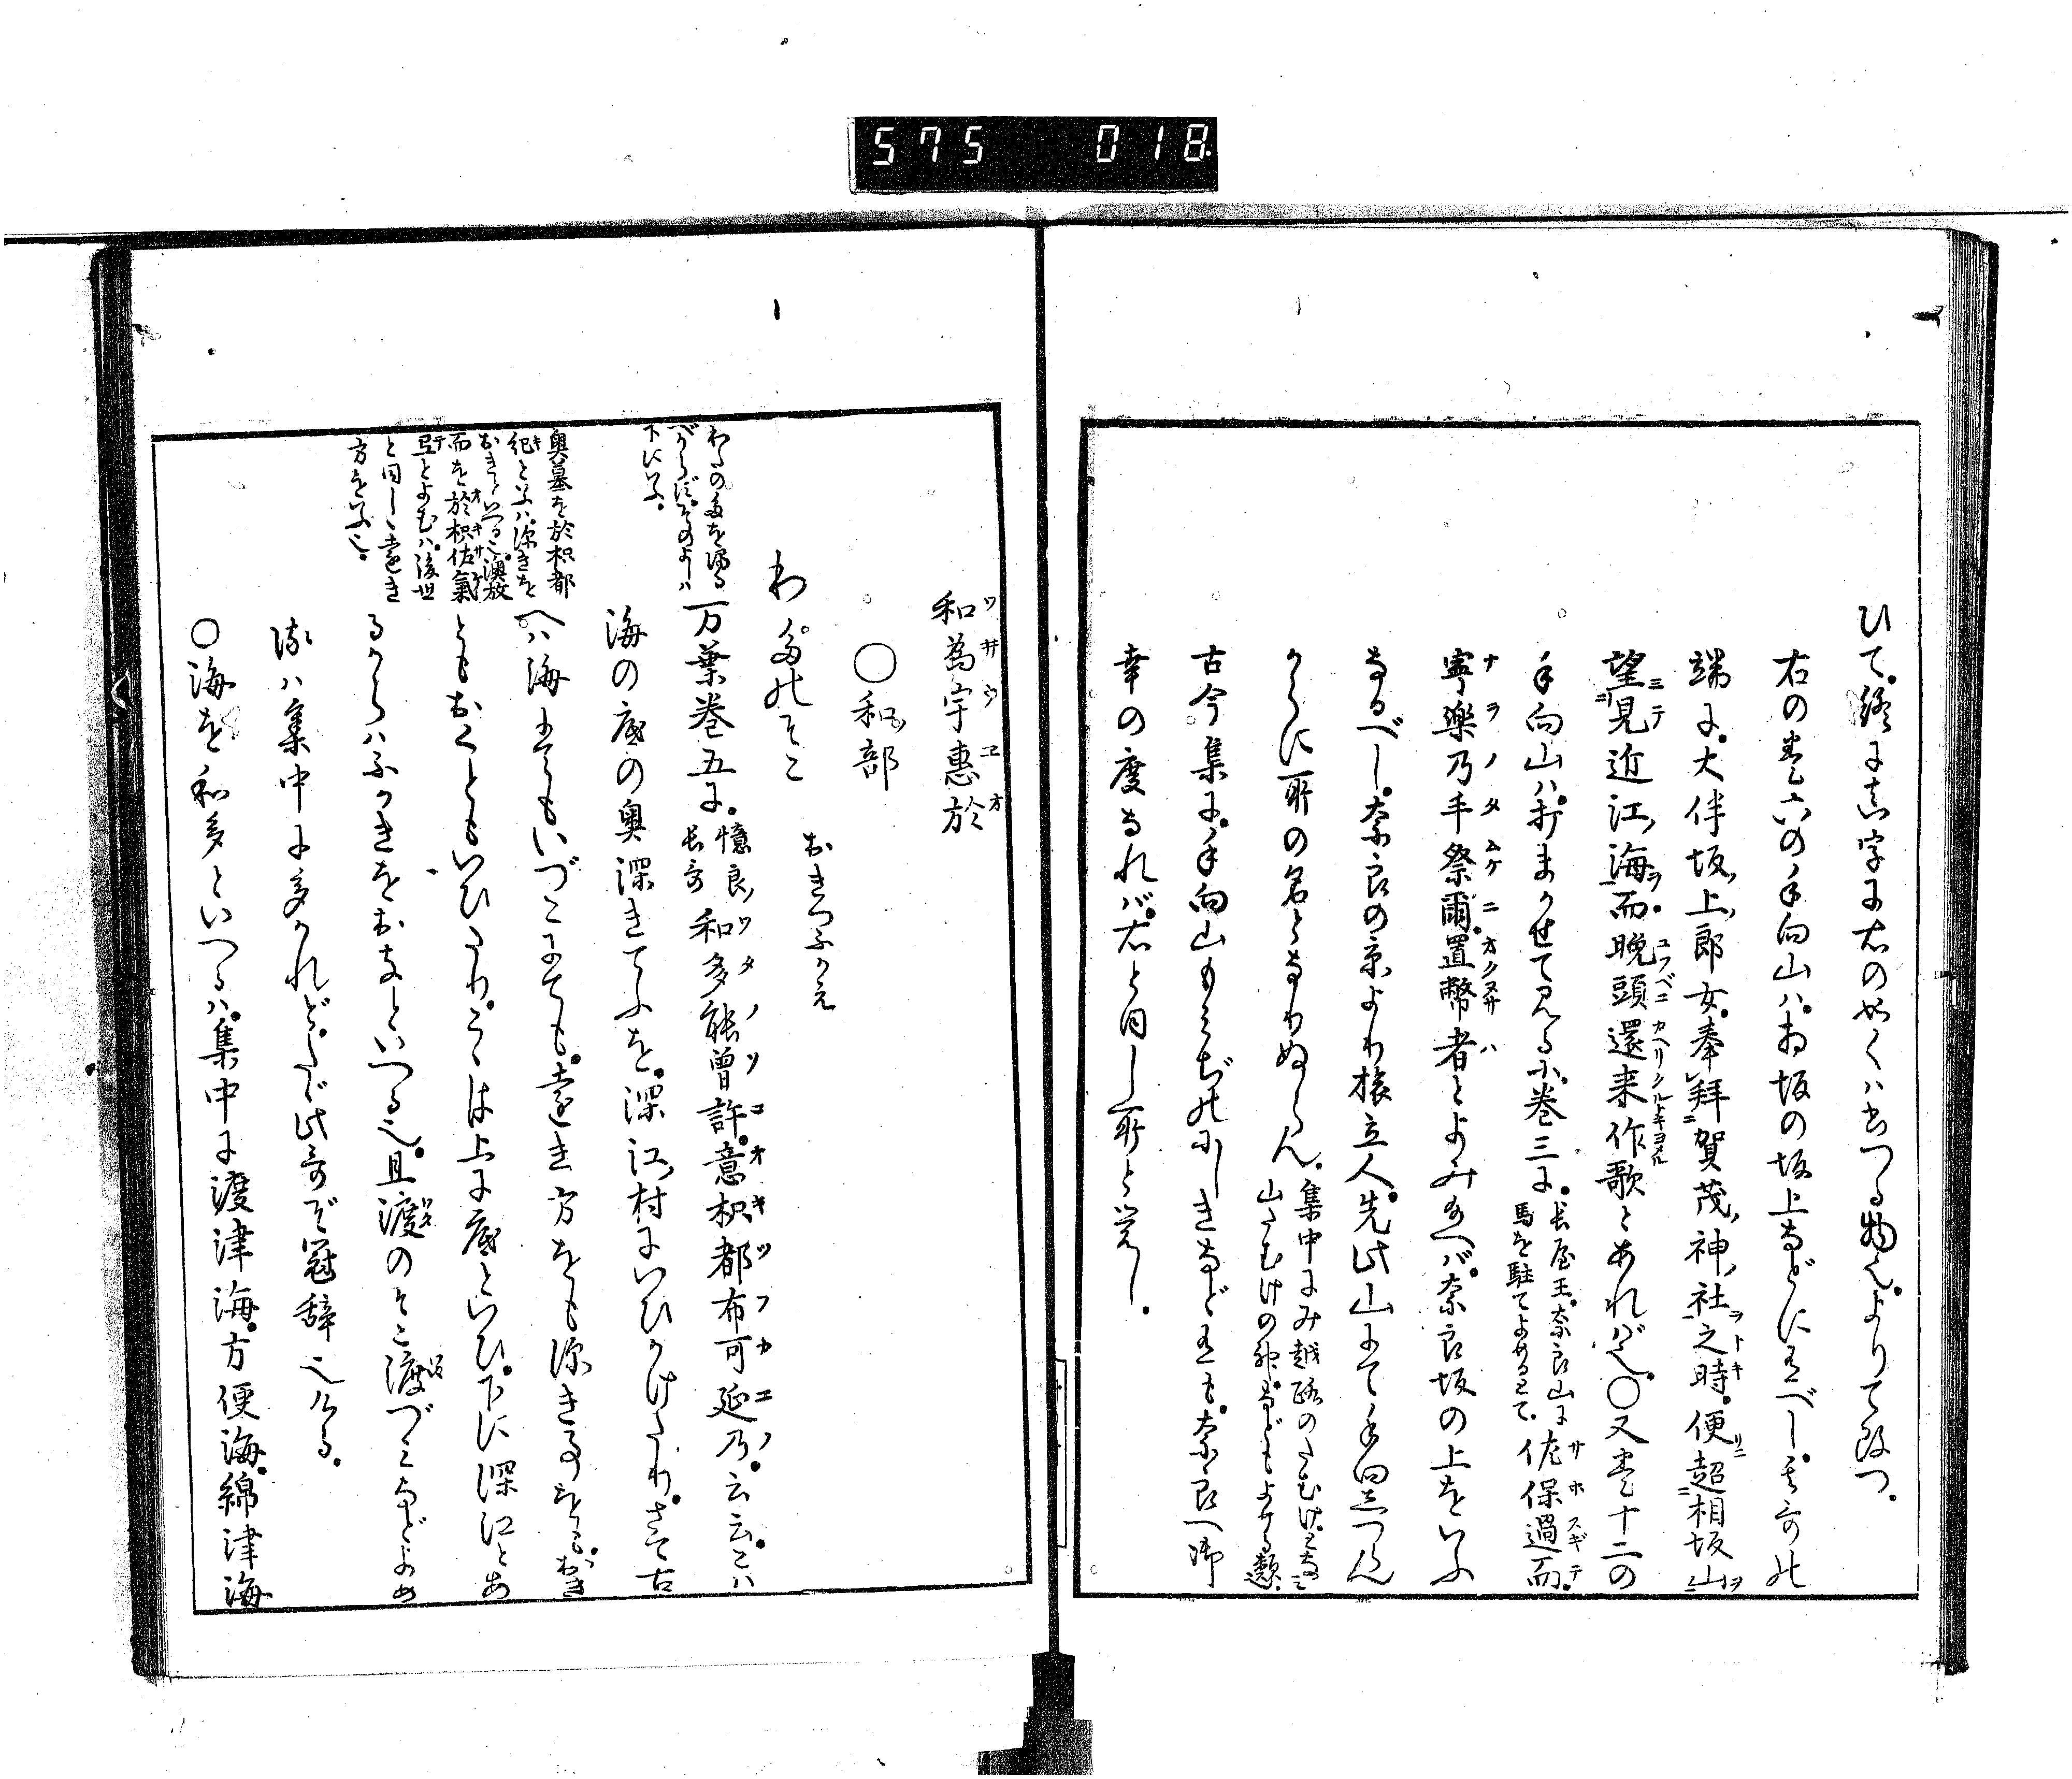 575 018
ひて終に真字に右の如くハ書つる物也よりて改つ
右の巻六の手向山ハ相坂の坂上などにるべし其哥の
端に大伴坂上郎女奉拝賀茂神社之時便超相坂山
望見近江海而晩頭還来作歌とあれバ也〇又巻十二の
手向山ハ打まかせてみるに巻三に長屋王奈良山に馬を駐てよめるとて佐保過而
寧楽乃手祭爾置幣者とよみ給へバ奈良坂の上をいふ
なるべし奈良の京より旅立人先此山にて手向しつらん
からに所の名となりぬらん集中にみ越路のたむけとよみ山たむけの神などもよめる類
古今集に手向山もみぢのにしきなども奈良へ御
幸の度なれバ右と同し所と覚し
和為宇恵於
〇和部
わたのそこ おきつふかえ
万葉巻五に憶良長哥和多能曽許意枳都布可延乃云云こハ
海の底の奥深きてふを深江村にいひかけたりさて古
へハ海にてもいづこにても遠き方をも深き所をもおき
ともおくともいひたりこゝは上に底といひ下に深江とあ
るからハふかきをおきといへる也且渡のそこ渡づみなどよめ
るハ集中に多かれどたゞ此哥ぞ冠辞也ける
〇海を和多といへるハ集中に渡津海方便海綿津海
わたの多を濁るべからずそのよしハ下にいふ
奥墓を於枳都
紀といふハ深きを
おきといへる也澳放
而を於枳佐気
弖とよむハ後世
と同しく遠き
方をいふ也